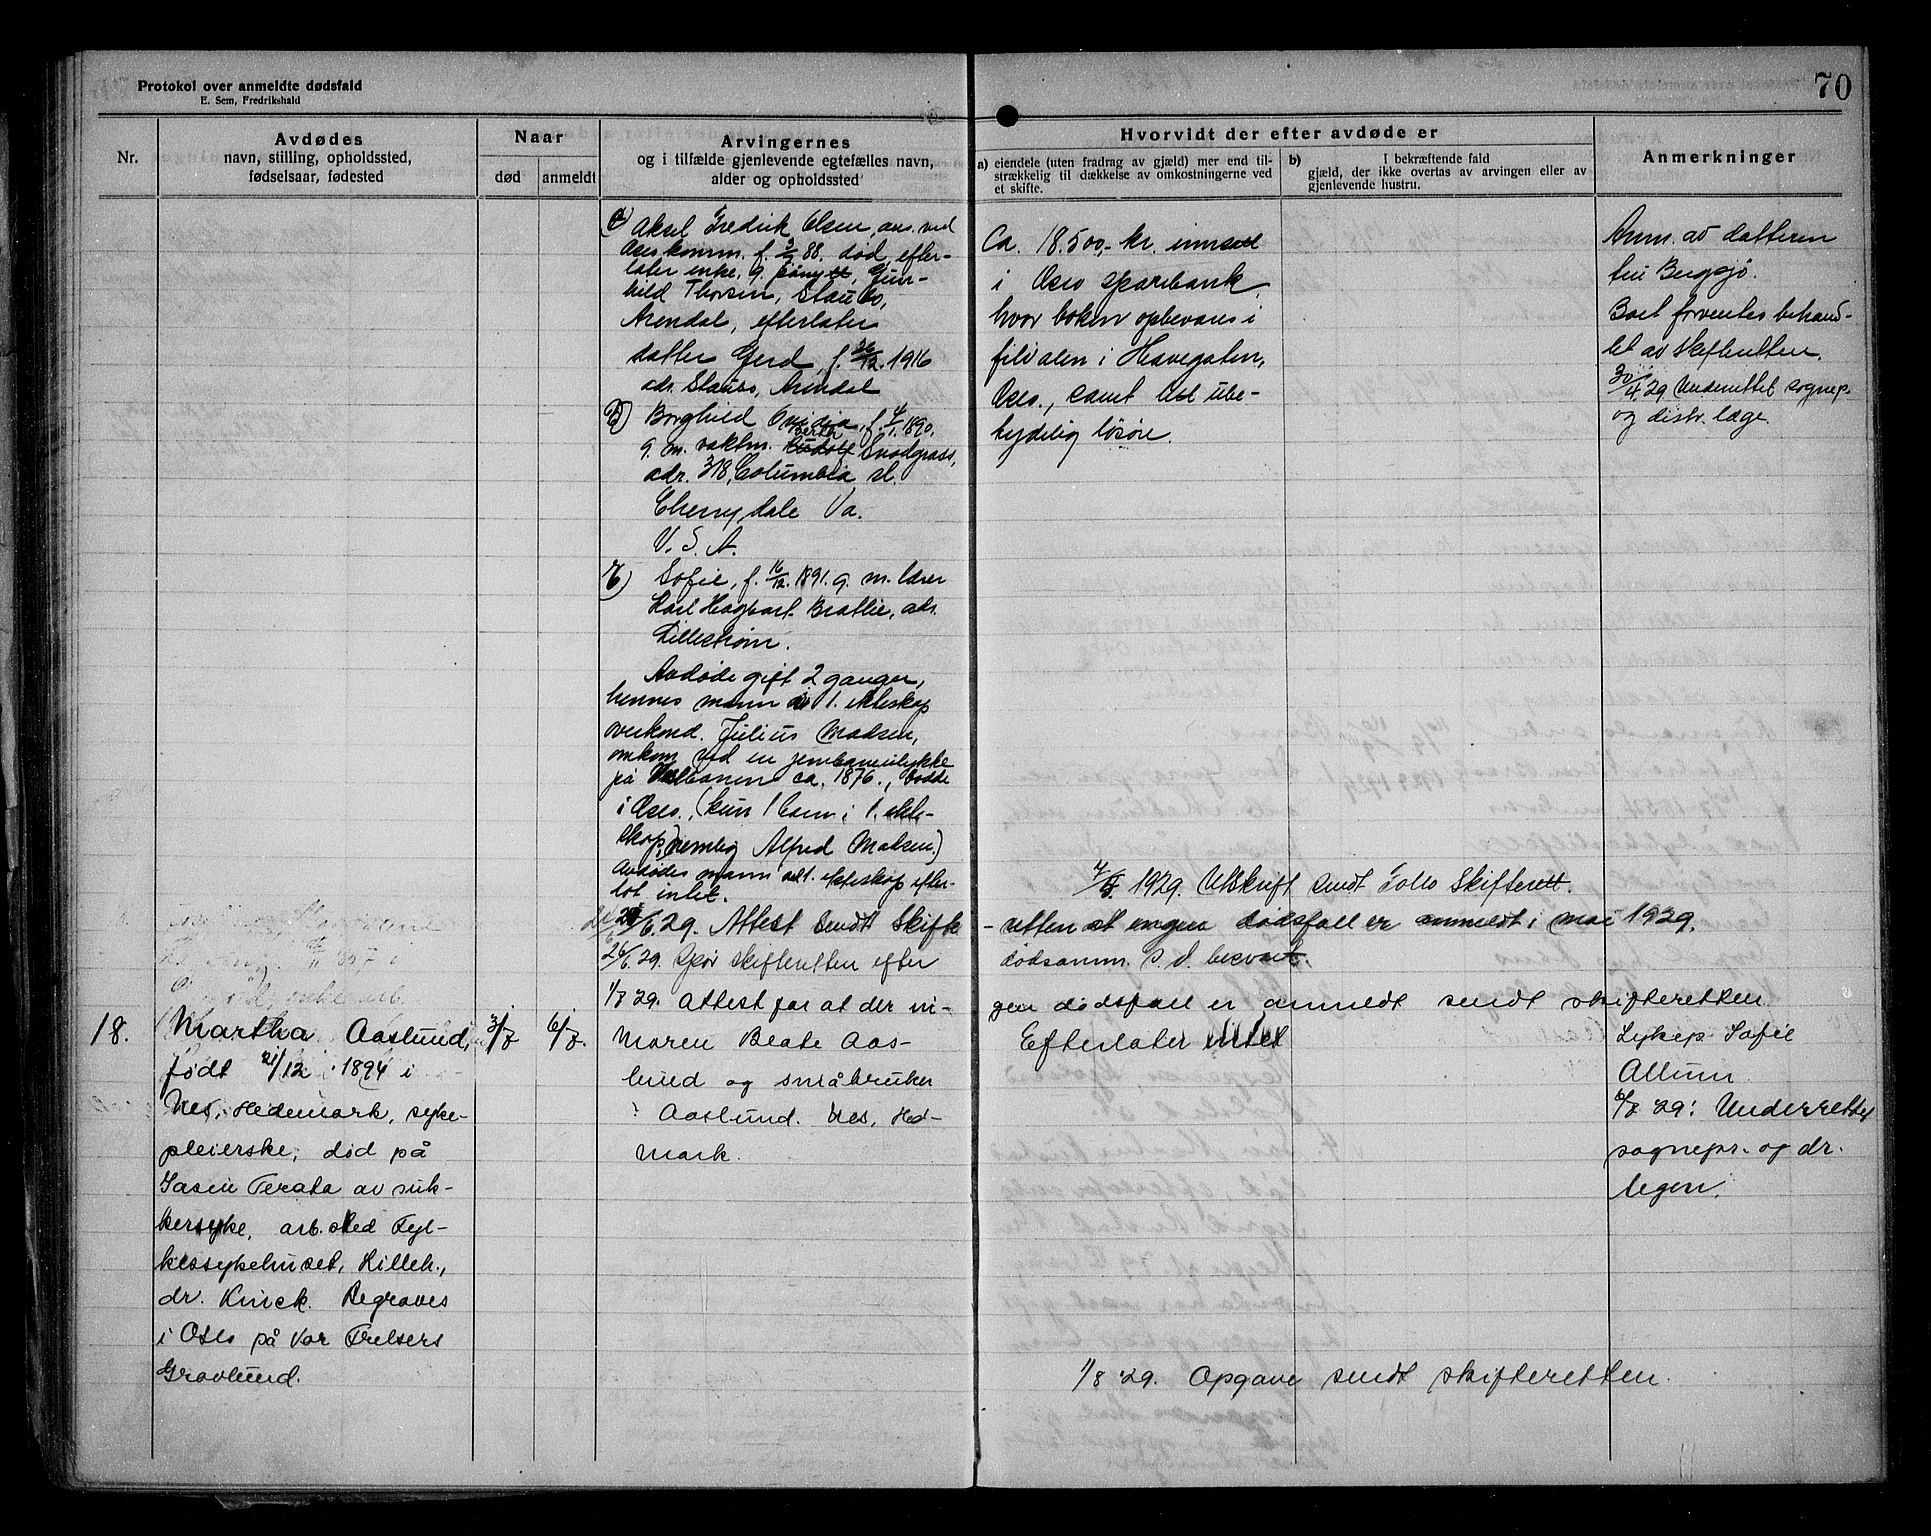 Protokol over anmeldte dødsfald
E. Sem, Fredrikshald
70
Nr.
Avdødes
navn, stilling, opholdssted,
fødselsaar, fødested
Naar
død
anmeldt
Arvingernes
og i tilfælde gjenlevende egtefælles navn,
alder og opholdssted
Hvorvidt der efter avdøde er
a) eiendele (uten fradrag av gjæld) mer end til-
strækkelig til dækkelse av omkostningerne ved
et skifte.
b) I bekræftende fald
gjæld, der ikke overtas av arvingen eller av
gjenlevende hustru.
Anmerkninger
Aksel Fredrik Olsen, ans. ved
Oslo komm. f. 88. død, efter-
later enke, g. Gun-
hild Thorsen,
Arendal, efterlater
datter Gerd, f. 1916
adr. Arendal
Borghild f. 1890,
g. m. vaktm. Snodgrass,
adr. 318, Columbia st.
Cherrydale Va.
U. S. A.
Sofie, f. 16/12. 1891. g. m. lærer
Karl Hagbart Brattlie, adr.
Lillestrøm.
Avdøde gift 2 ganger,
hennes mann i 1. ekteskap
overkond. Julius Madsen,
omkom ved en jernbaneulykke
på ca. 1876., bodde
i Oslo., (kun 1 barn i 1. ekte-
skap, nemlig Alfred Madsen.)
Avdødes mann av 1. ekteskap efter-
lot intet.
Ca. 18.500,- kr. innsatt
i Oslo sparebank,
hvor boken opbevares i
filialen i Havegaten,
Oslo., samt litt ube-
tydelig løsøre.
Anm. av datteren
fru Bergsjø.
Boet forventes behand-
let av skifteretten.
30/4 29 Underrettet sognepr.
og distr. læge.
1929. Utskrift sendt Follo Skifterett.
6. 29. Attest sendt Skifte-
retten at ingen dødsfall er anmeldt i mai 1929.
26/6. 29. Spør skifteretten efter
dødsanm. S. d. besvart.
1/7 29. Attest for at der in-
gen dødsfall er anmeldt sendt skifteretten.
18.
Martha Aaslund,
født 21/12 1894 i
Nes, Hedemark, syke-
pleierske, død på
av suk-
kersyke, arb. sted Fyl-
kessykehuset, Lilleh.,
dr. Begraves
i Oslo på Vor Frelsers
Gravlund.
3/7
6/7.
Maren Beate Aas-
lund og småbruker
Aaslund. Nes, Hed-
mark.
Efterlater intet
Sykepl. Sofie
Allum.
6/7 29: Underrettet
sognepr. og dr.
legen.
1/8 29. Opgave sendt skifteretten.